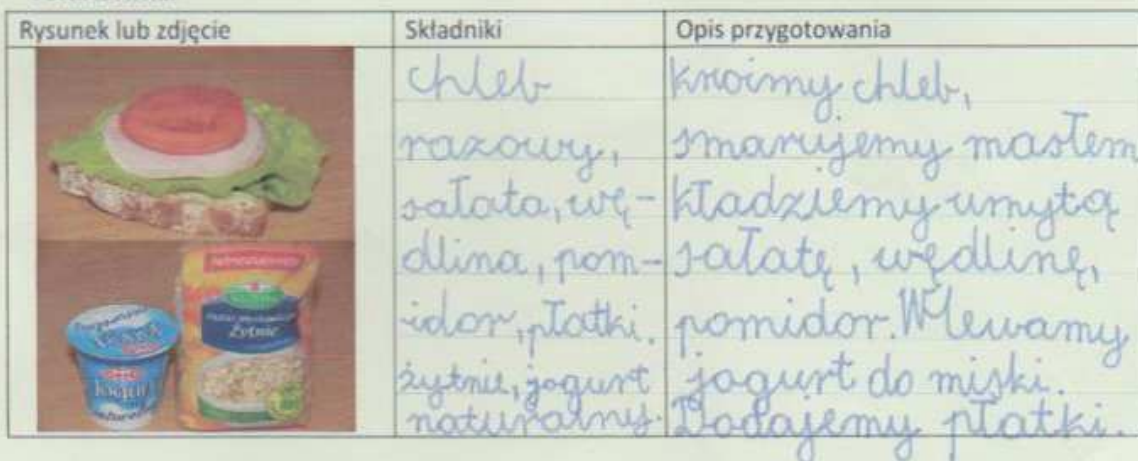 Rysunek lub zdjęcie
Składniki
Opis przygotowania
chleb
razowy,
sałata, wę-
dlina, pom-
idor, płatki.
żytnie, jogurt
naturalny.
kroimy chleb,
smarujemy masłem
kładziemy umytą
sałatę, wędlinę,
pomidor. Wlewamy
jogurt do miski.
Dodajemy płatki.
Żytnie